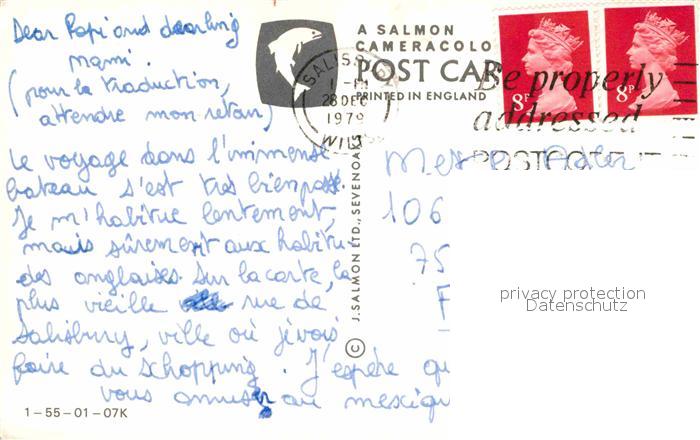 Dear Papi and darling
mami.
(pour la traduction,
attendre mon retour)
Le voyage dans l'immense
bateau s'est très bien passé
Je m'habitue lentement,
mais sûrement aux habitu-
des anglaises. Sur la carte, la
plus vieille rue de
Salisbury, ville où j'vois
faire du schopping. J'espère qu
vous amusez au mexiqu
1-55-01-07K
A SALMON
CAMERACOLO
POST CAR
PRINTED IN ENGLAND
SALISB
1 - PM
28 DEC
1979
WILTS
© J. SALMON LTD., SEVENOAKS
8P 8P
Be properly
addressed
POSTCODE IT
106
75
F
privacy protection
Datenschutz